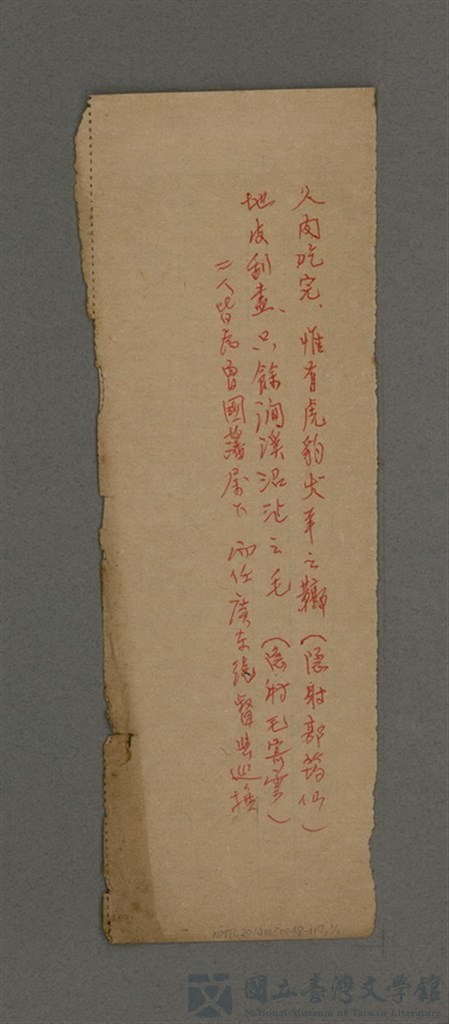 人肉吃完、惟有虎豹犬羊之鞹（隱射郭筠仙）
地皮刮盡、只餘澗溪沼沚之毛（隱射毛寄雲）
二人皆為曾國藩屬下 而任廣東總督與巡撫
國立臺灣文學館
National Museum of Taiwan Literature